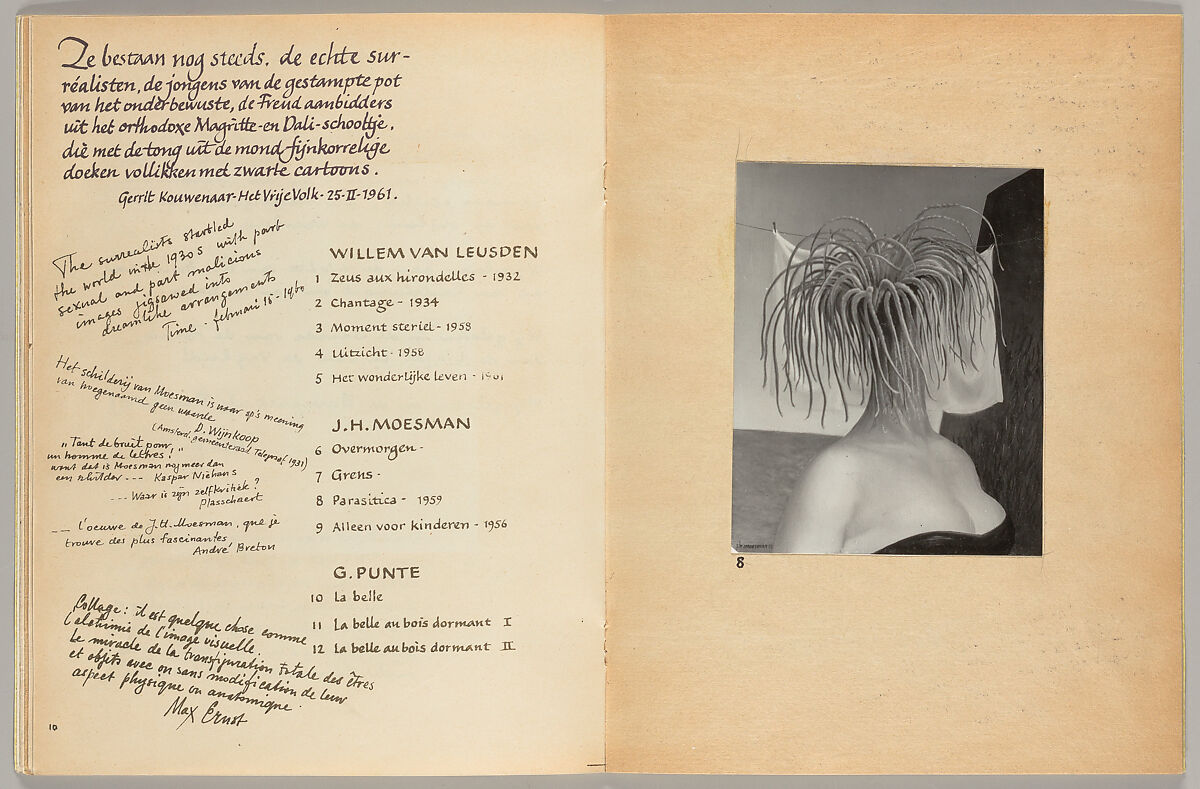 Ze bestaan nog steeds, de echte sur-
réalisten, de jongens van de gestampte pot
van het onderbewuste, de Freud aanbidders
uit het orthodoxe Magritte-en Dali-schooltje,
die met de tong uit de mond fijnkorrelige
doeken vollikken met zwarte cartoons.
Gerrit Kouwenaar-Het Vrije Volk-25-II-1961.
The surrealists startled
the world in the 1930s with part
sexual and part malicious
images jigsawed into
dreamlike arrangements
Time - februari 15-1960
Het schilderij van Moesman is naar sp's meening
van hoegenaamd geen waarde
D. Wijnkoop
(Amsterd. gemeenteraad Telegraaf 1931)
„Tant de bruit pour
un homme de lettres!"
want dat is Moesman mij meer dan
een schilder --- Kaspar Niehans
--- Waar is zijn zelfkritiek?
Plasschaert
--- l'oeuvre de J.H. Moesman, que je
trouve des plus fascinantes
André Breton
Collage: il est quelque chose comme
l'alchimie de l'image visuelle.
Le miracle de la transfiguration totale des êtres
et objets avec ou sans modification de leur
aspect physique ou anatomique.
Max Ernst
10
WILLEM VAN LEUSDEN
1 Zeus aux hirondelles - 1932
2 Chantage - 1934
3 Moment steriel - 1958
4 Uitzicht - 1958
5 Het wonderlijke leven - 1961
J.H. MOESMAN
6 Overmorgen -
7 Grens -
8 Parasitica - 1959
9 Alleen voor kinderen - 1956
G. PUNTE
10 La belle
11 La belle au bois dormant I
12 La belle au bois dormant II
8